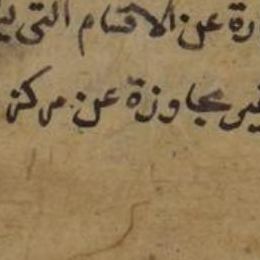 رة عن الاقسام التى
ير مجاوزة عن مركز